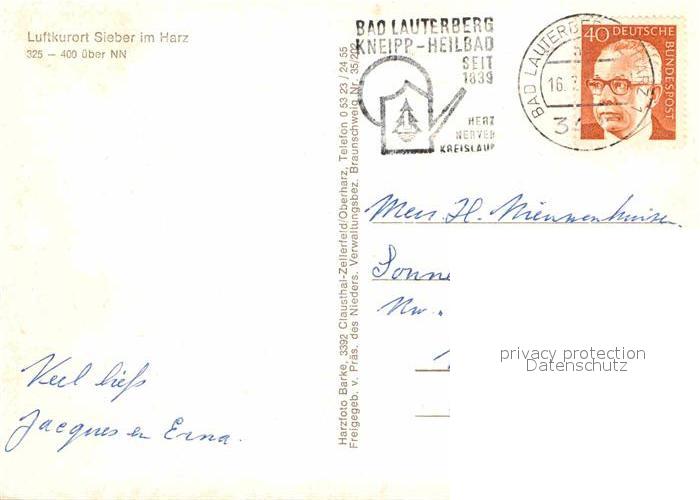 Luftkurort Sieber im Harz
325 – 400 über NN
Veel liefs
Jacques en Erna.
Harzfoto Barke, 3392 Clausthal-Zellerfeld/Oberharz, Telefon 0 53 23 / 24 55
Freigegeb. v. Präs. des Nieders. Verwaltungsbez. Braunschweig Nr. 35/202
BAD LAUTERBERG
KNEIPP-HEILBAD
SEIT
1839
HERZ
NERVEN
KREISLAUF
BAD LAUTERBERG HARZ 1
16.
40 DEUTSCHE
BUNDESPOST
H. Nieuwenhuize
Sonne
Nw.
privacy protection
Datenschutz